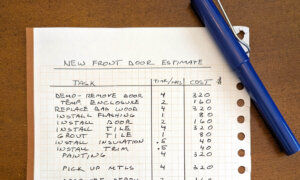 NEW FRONT DOOR ESTIMATE
TASK TIME/HRS COST $
DEMO-REMOVE DOOR 4 320
TEMP. ENCLOSURE 2 160
REPLACE BAD WOOD 4 320
INSTALL FLASHING 1 80
INSTALL DOOR 2 160
INSTALL TILE 4 320
GROUT TILE 1 80
INSTALL INSULATION .5 40
INSTALL TRIM .5 40
PAINTING 4 320
PICK UP MTLS 4 320